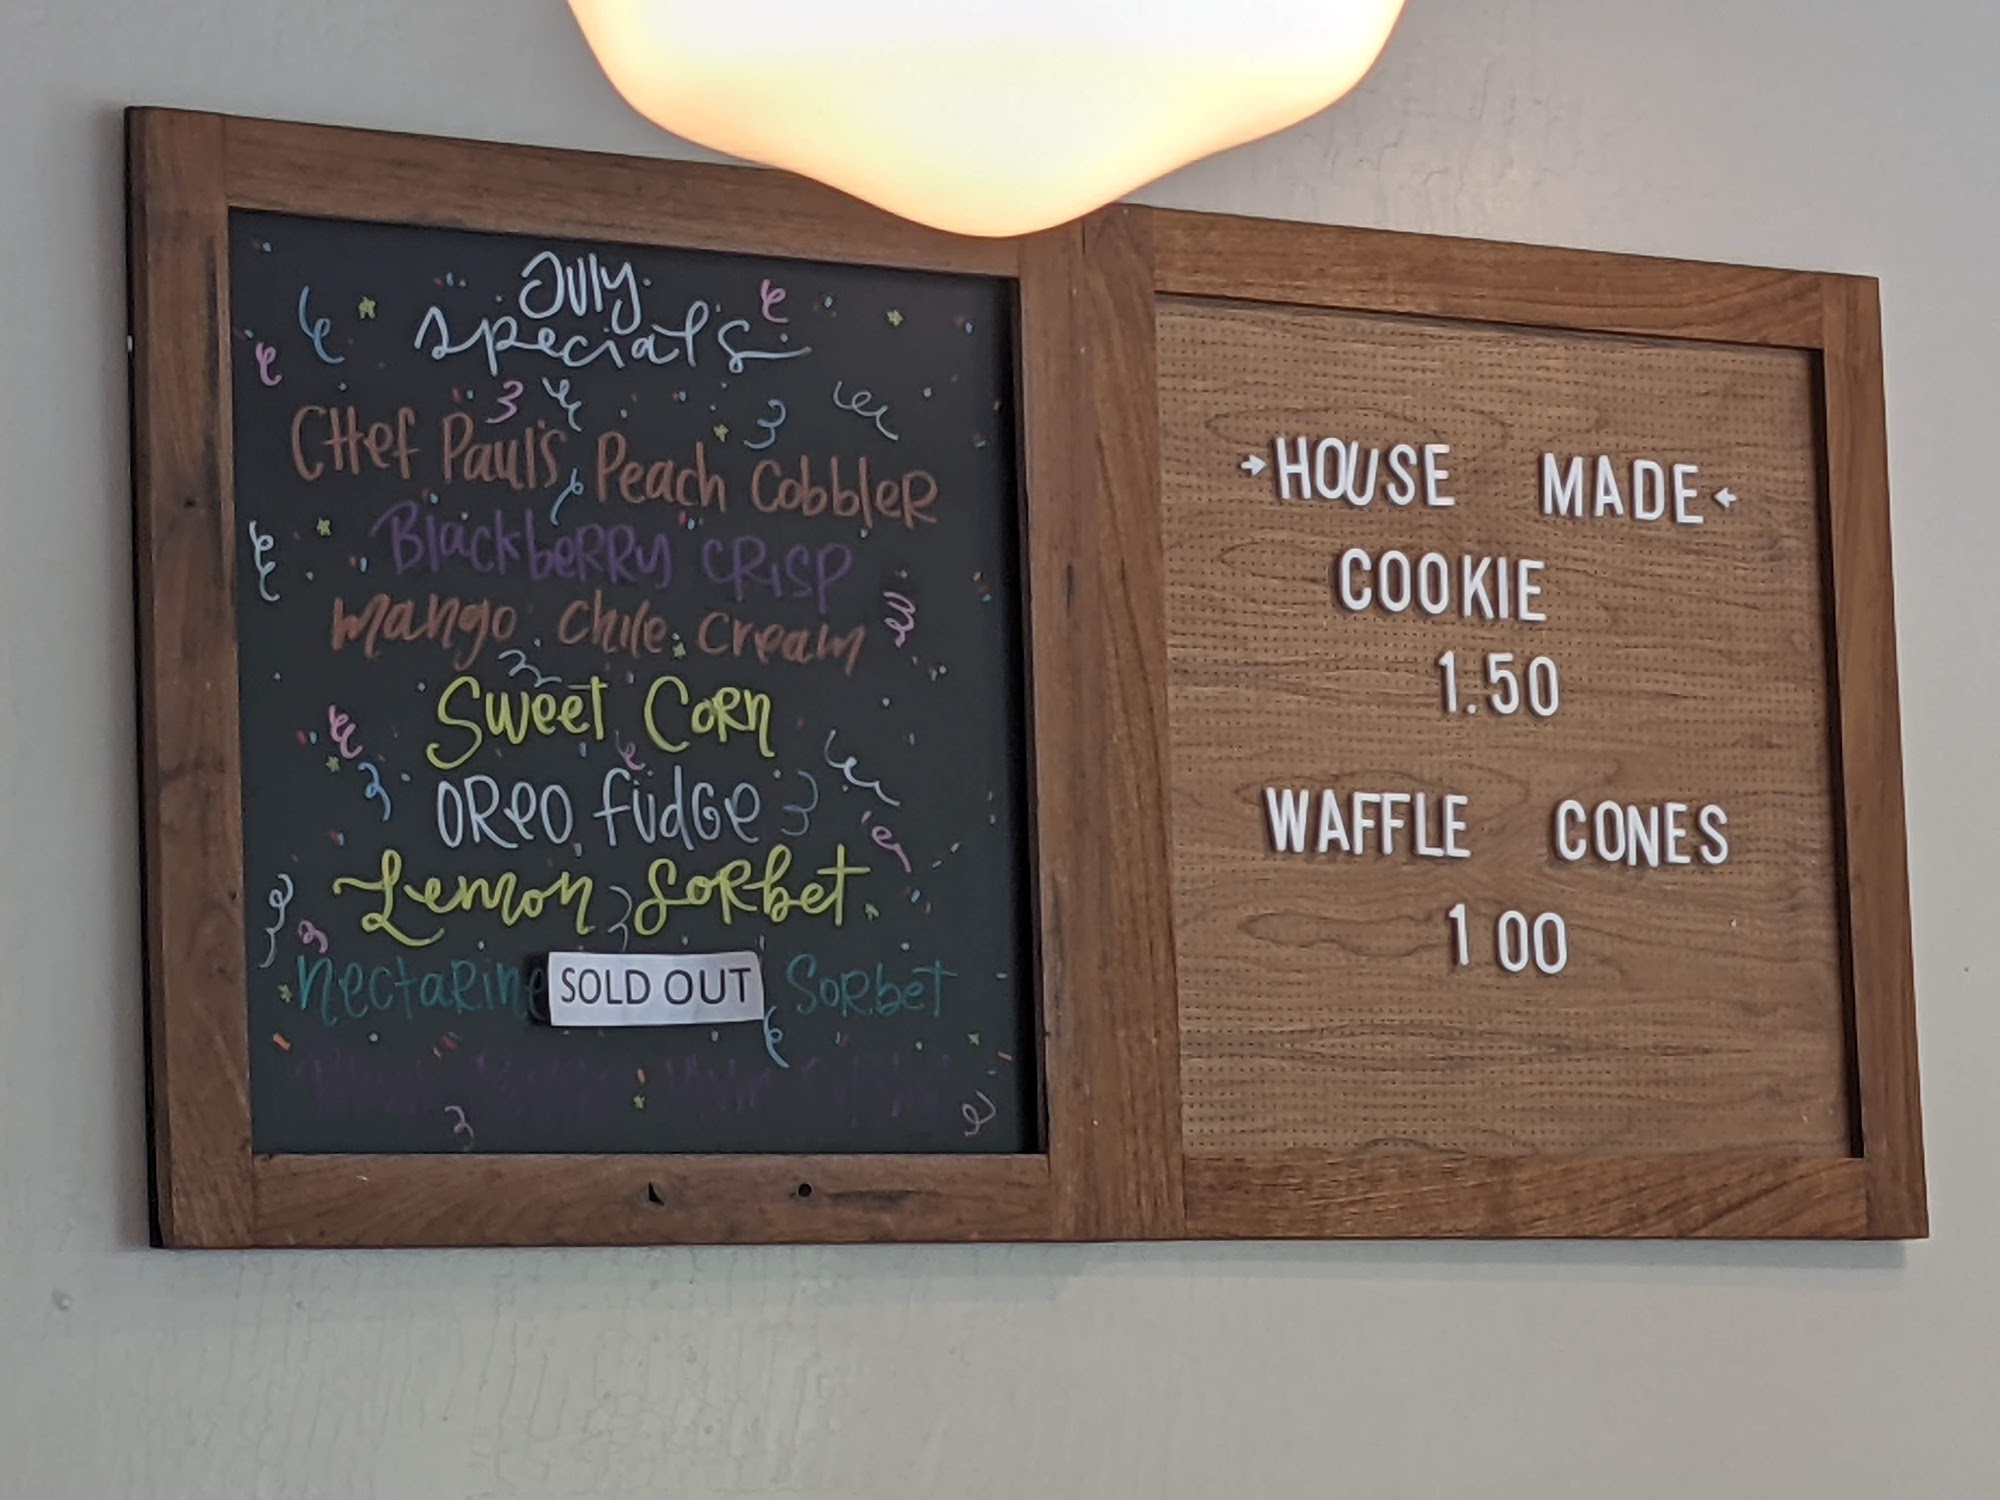 July
specials
Chef Paul's Peach Cobbler
Blackberry Crisp
mango chile cream
Sweet Corn
Oreo fudge
Lemon Sorbet
nectarine SOLD OUT Sorbet
→HOUSE MADE←
COOKIE
1.50
WAFFLE CONES
1 00